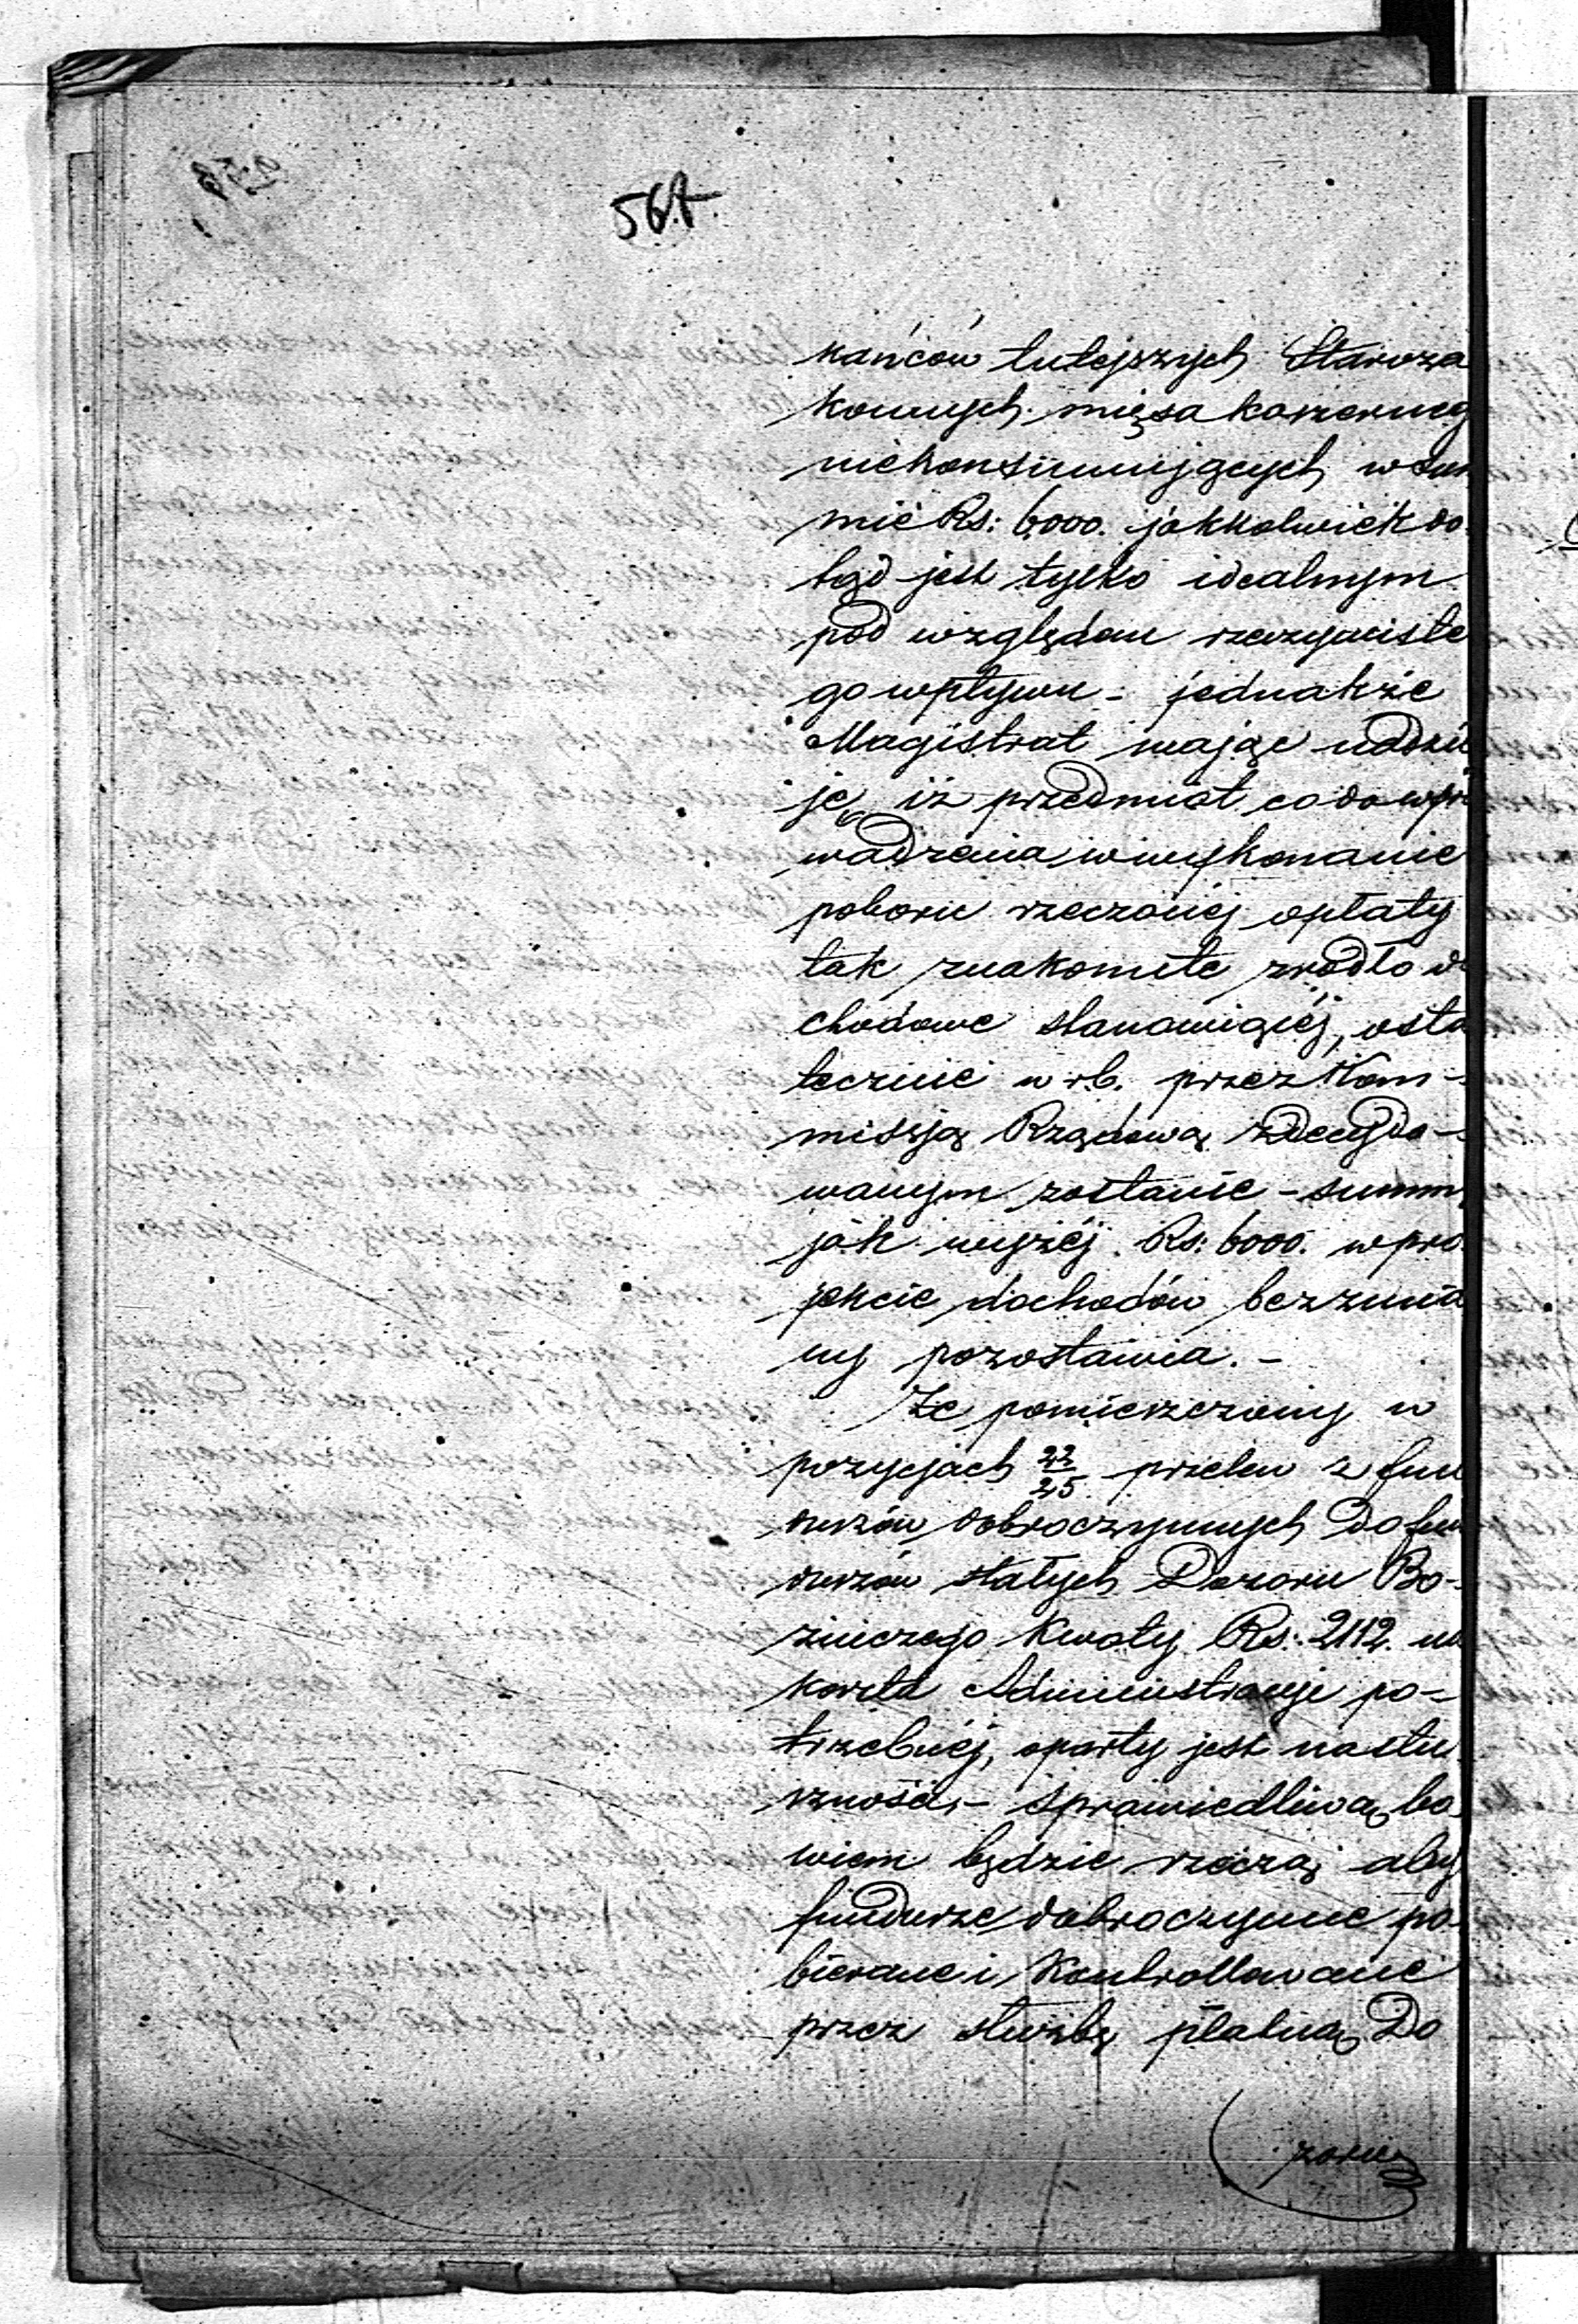 567
kańców tutejszych Staroza
konnych mięsa koszerneg
niekonsumujących w sum
mie Rs: 6000. jakkolwiek do
tąd jest tylko idealnym
pod względem rzeczywiste
go wpływu - jednakże
Magistrat mając nadzie
ję, iż przedmiot co do wpro
wadzenia w wykonanie
poboru rzeczonéj opłaty
tak znakomite zrodło do
chodowe stanowiącéj, osta
tecznie w rb. przez Kom-
missją Rządową zdecydo-
wanym zostanie - summ
jak wyżéj Rs: 6000. w pro
jekcie dochodów bez zmia
ny pozostawia. -
Że pomieszczony w
pozycjach 22/25 przelew z fun
duszów dobroczynnych do fun
duszów stałych Dozoru Bo-
żniczego kwoty Rs: 2112. na
koszta Administracji po-
trzebnéj, oparty jest na słu
szności - sprawiedliwą bo
wiem będzie rzeczą aby
fundusze dobroczynne po
bierane i kontrollowane
przez służbę płatną Do
zoru